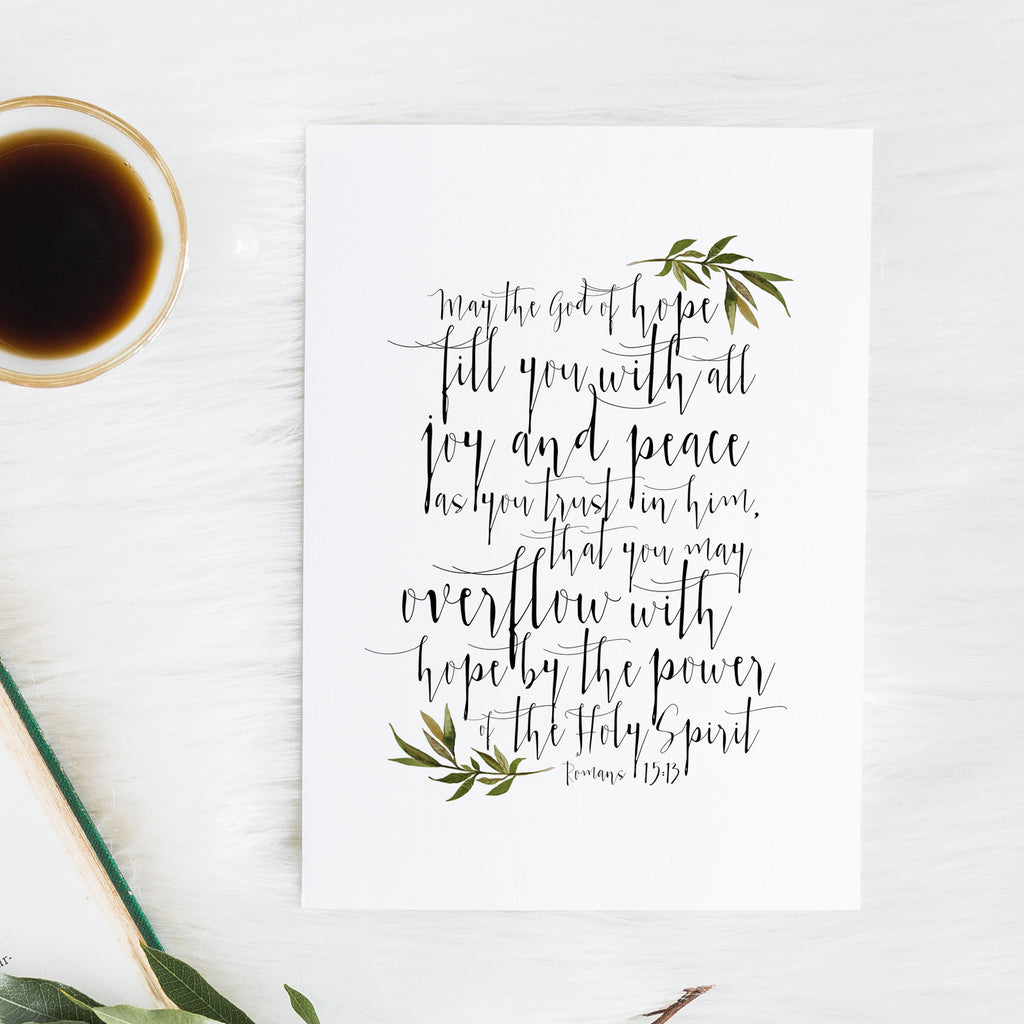 May the God of hope
fill you with all
joy and peace
as you trust in him,
that you may
overflow with
hope by the power
of the Holy Spirit
Romans 15:13